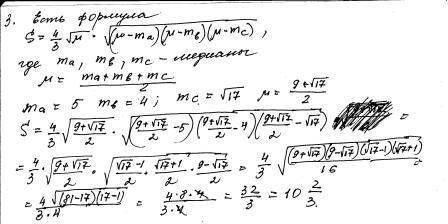 3. Есть формула
S = 4/3 √μ · √((μ-ma)(μ-mв)(μ-mc)),
где ma, mв, mc - медианы
μ = (ma+mв+mc)/2
ma = 5 mв = 4; mc = √17 μ = (9+√17)/2
S = 4/3 √((9+√17)/2) · √(((9+√17)/2 - 5)((9+√17)/2 - 4)((9+√17)/2 - √17)) =
= 4/3 · √((9+√17)/2) · √((√17-1)/2 · (√17+1)/2 · (9-√17)/2) = 4/3 √((9+√17)(9-√17)(√17-1)(√17+1)/16) =
= 4√((81-17)(17-1))/(3·4) = (4·8·4)/(3·4) = 32/3 = 10 2/3.